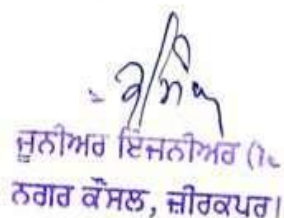 ਜੂਨੀਅਰ ਇੰਜਨੀਅਰ
ਨਗਰ ਕੌਂਸਲ, ਜ਼ੀਰਕਪੁਰ।